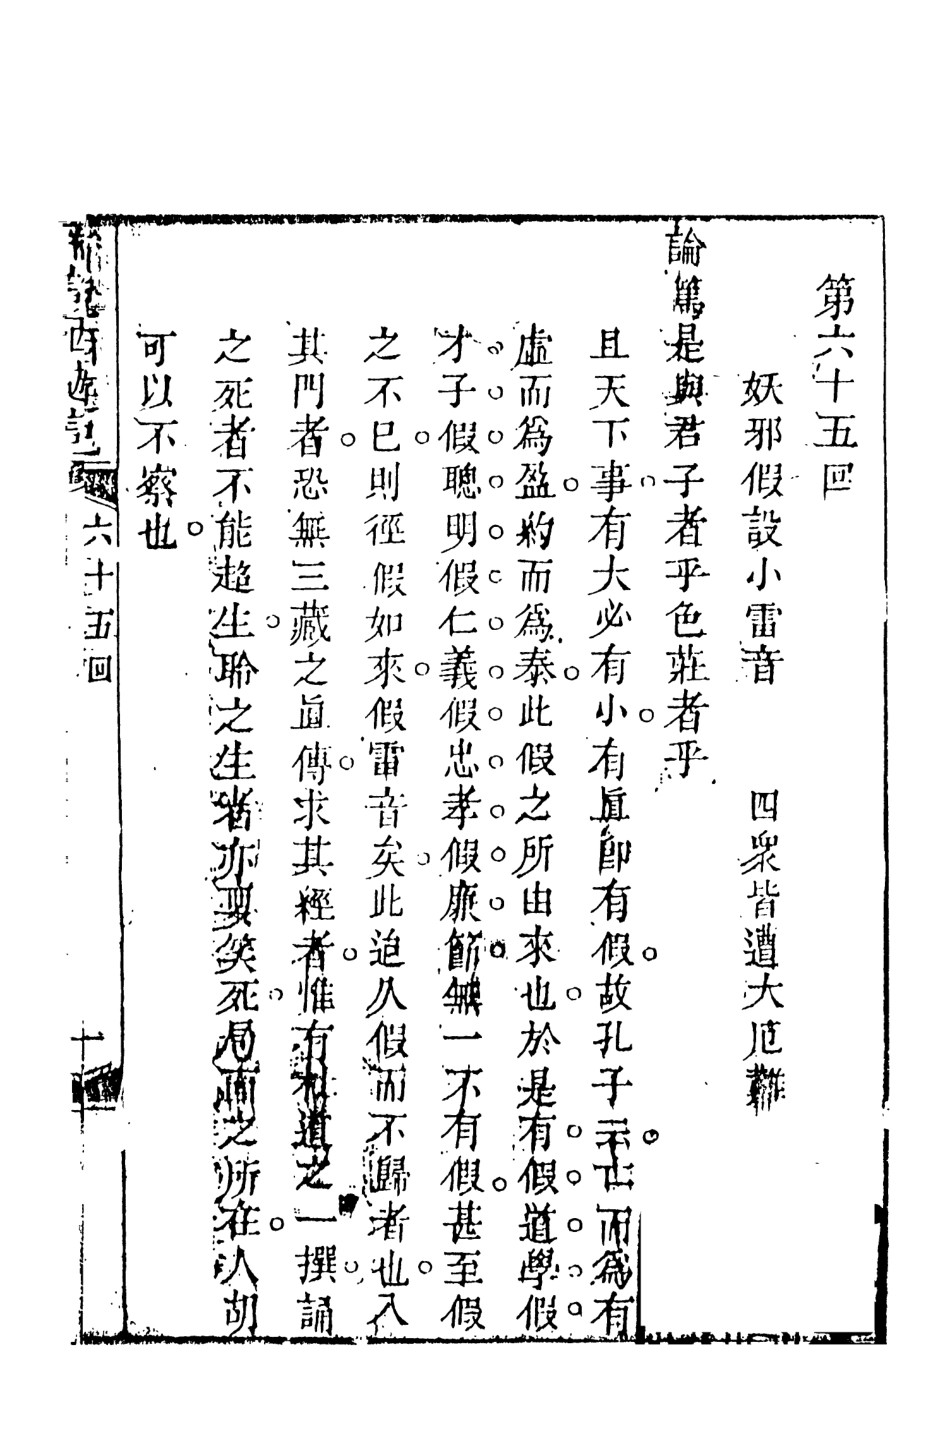 第六十五回
妖邪假設小雷音　四衆皆遭大厄難
論篤是與君子者乎色莊者乎
且天下事有大必有小有眞卽有假故孔子云亡而爲有
虛而爲盈約而爲泰此假之所由來也於是有假道學假
才子假聰明假仁義假忠孝假廉節無一不有假甚至假
之不已則徑假如來假雷音矣此迨久假而不歸者也入
其門者恐無三藏之眞傳求其經者惟有和道之一撰誦
之死者不能超生聆之生者亦要笑死局面之所在人胡
可以不察也
新說西遊記
六十五回